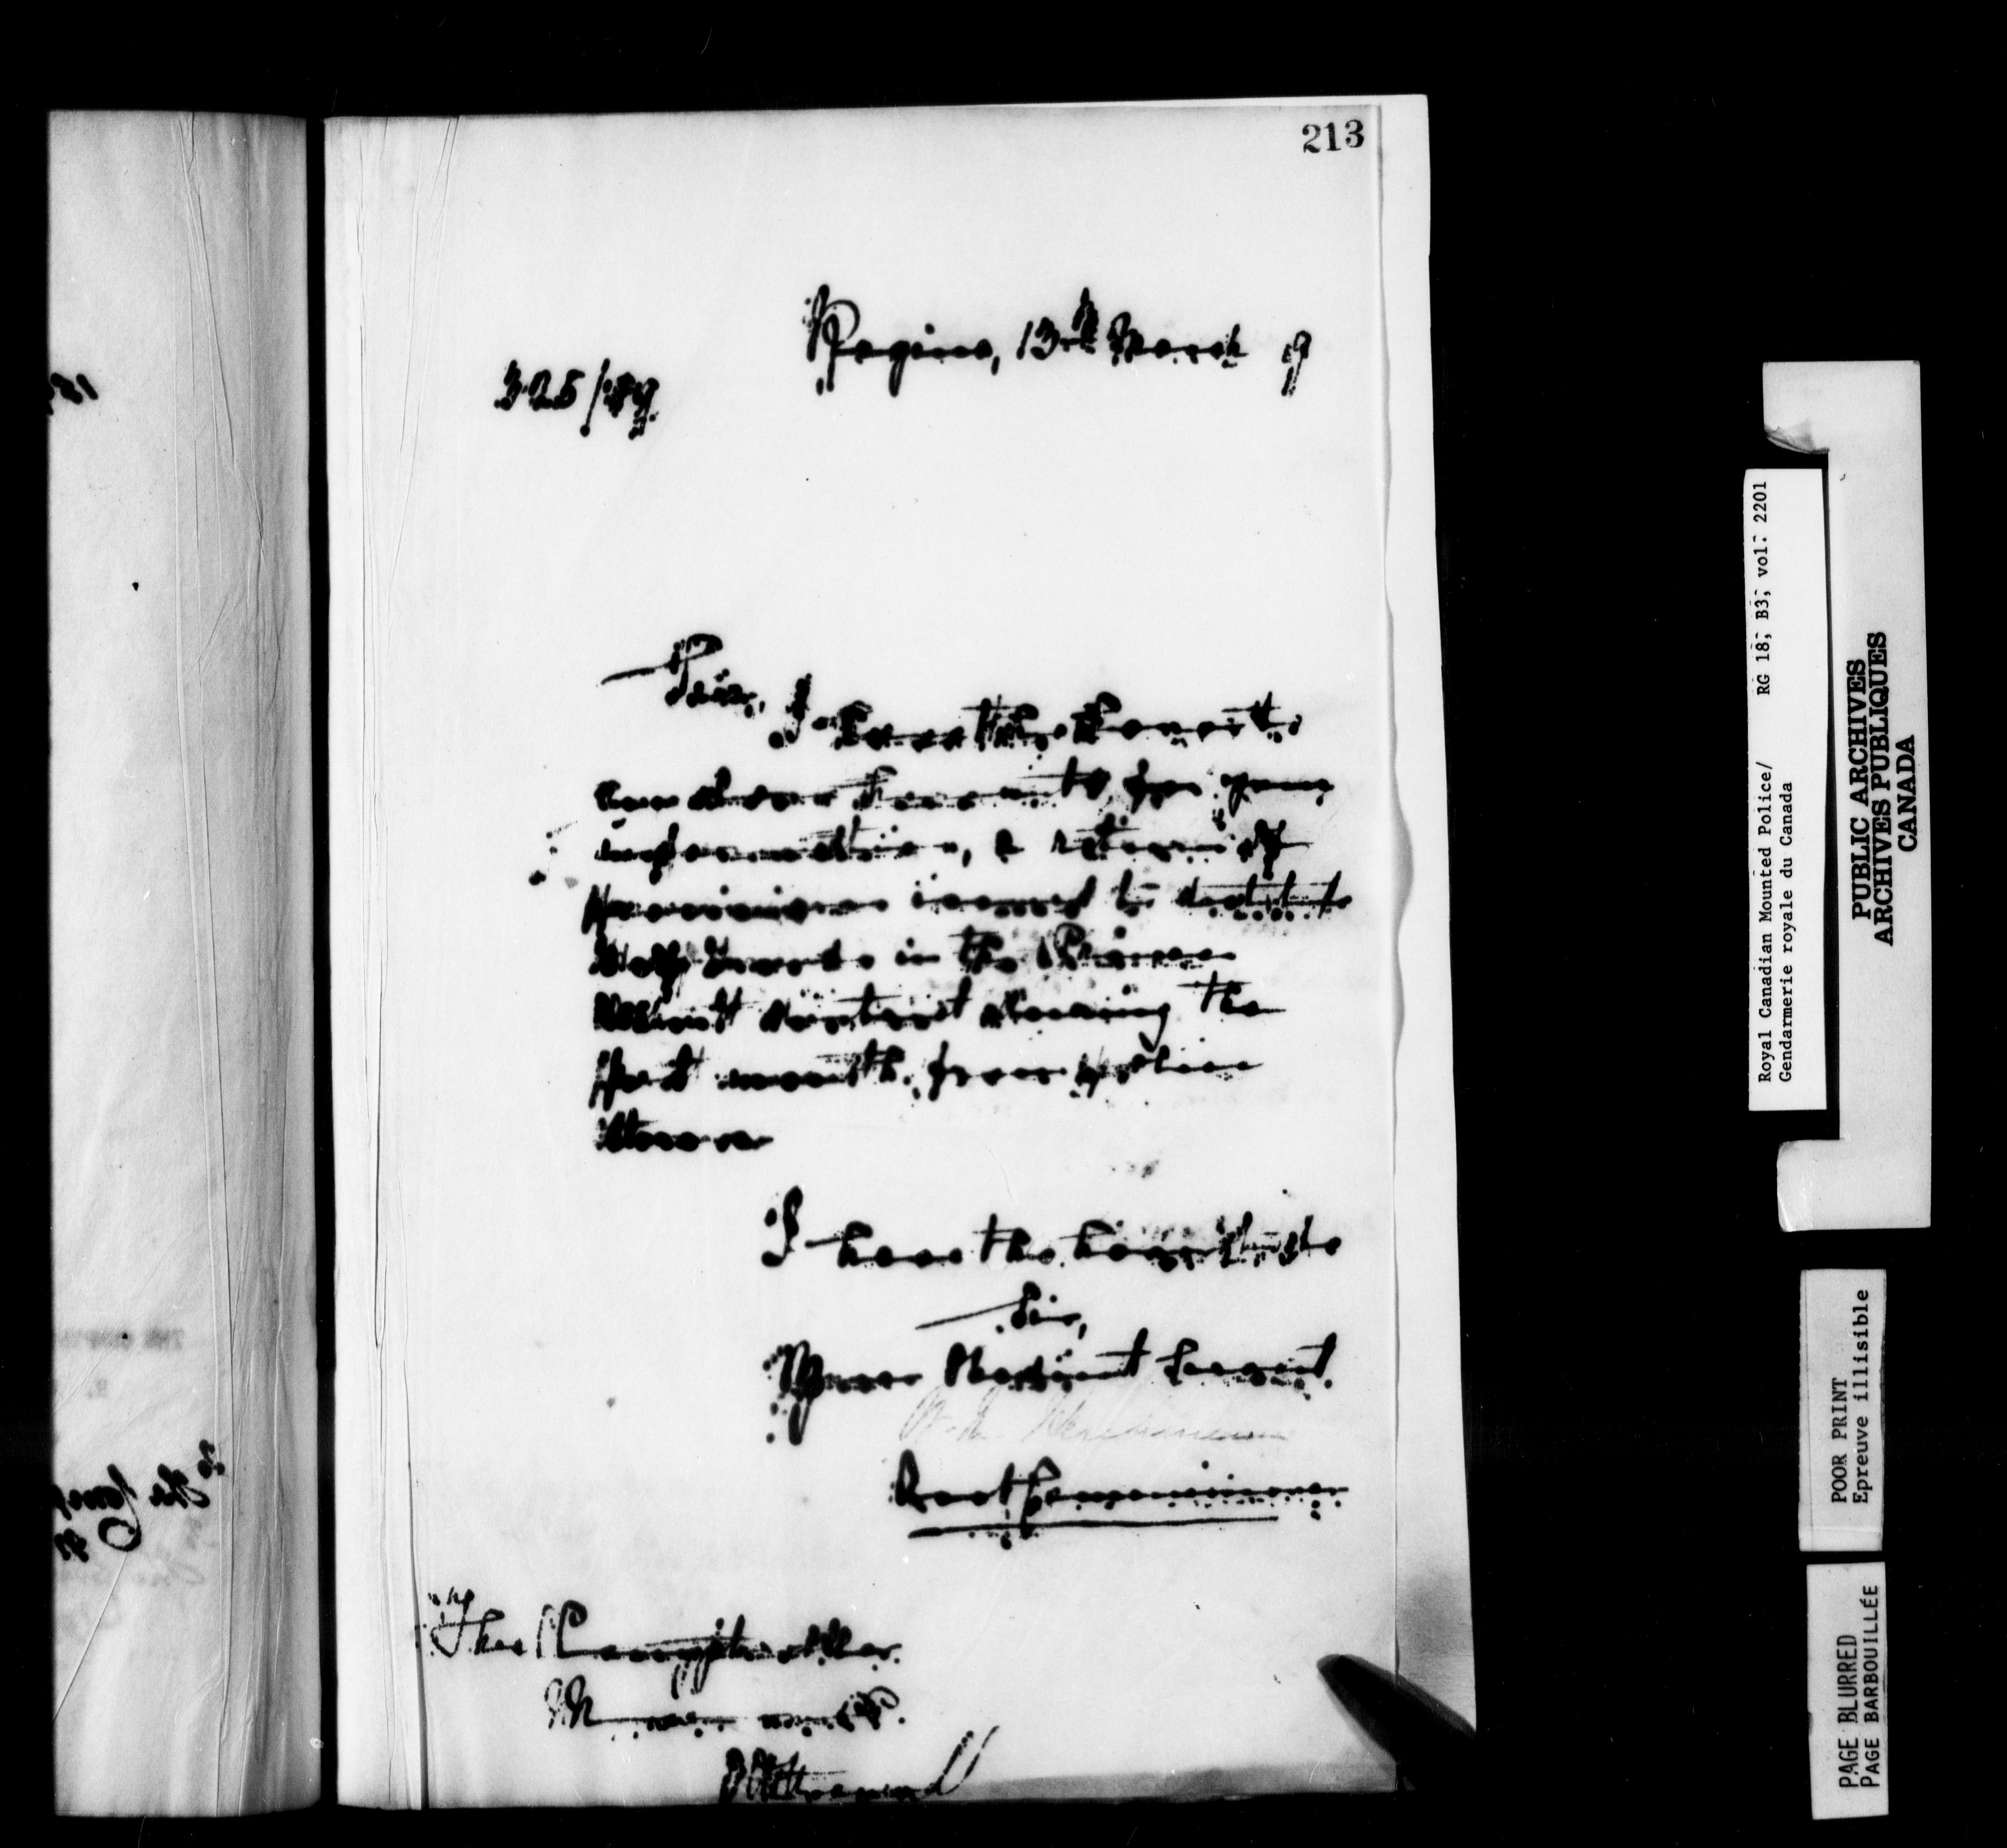 213
Regina, 13th March 9
325/89
Sir,
I have the honor to
enclose herewith, for your
information, a return of
provisions issued to destitute
Half breeds in the Prince
Albert district during the
past month, from police
stores
I have the honor to be
Sir,
Your Obedient Servant.
Asst Commissioner
The Comptroller
N. W. M. P.
Ottawa
Royal Canadian Mounted Police/ RG 18, B3, vol. 2201
Gendarmerie royale du Canada
PUBLIC ARCHIVES
ARCHIVES PUBLIQUES
CANADA
POOR PRINT
Epreuve illisible
PAGE BLURRED
PAGE BARBOUILLÉE